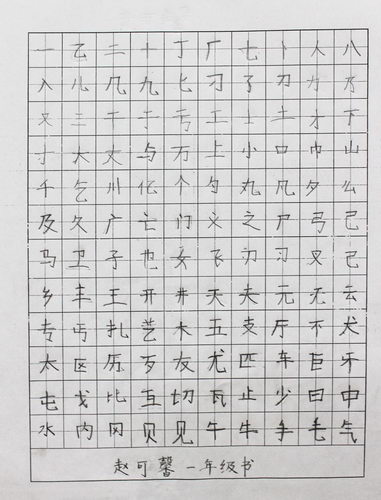 一乙二十丁厂七卜人八
入儿几九匕刁了刀力乃
又三干于亏工士土才下
寸大丈与万上小口巾山
千乞川亿个勺丸凡夕么
及久广亡门义之尸弓己
马卫子也女飞刃习叉己
乡丰王开井天夫元无云
专丐扎艺木五支厅不犬
太区历歹友尤匹车巨牙
屯戈比互切瓦止少曰中
水内冈贝见牛牛手毛气
赵可馨 一年级书